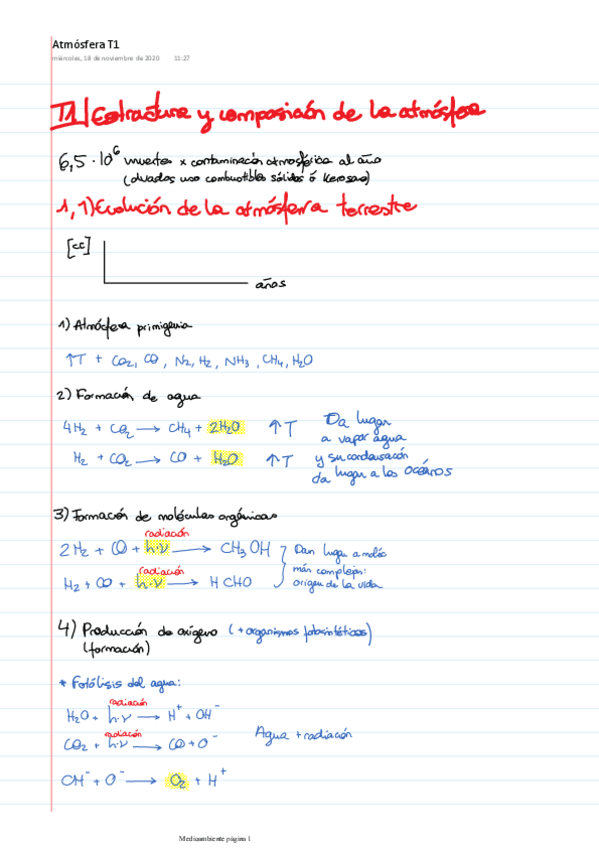 Atmósfera T1
miércoles, 18 de noviembre de 2020 11:27
T1/Estructura y composición de la atmósfera
6,5 · 10⁶ muertes x contaminación atmosférica al año
(olvadas uso combustibles sólidos ó keroseno)
1,1) Evolución de la atmósfera terrestre
[cc]
años
1) Atmósfera primigenia
↑T + CO₂, CO, N₂, H₂, NH₃, CH₄, H₂O
2) Formación de agua
4H₂ + CO₂ → CH₄ + 2H₂O ↑T
H₂ + CO₂ → CO + H₂O ↑T
Da lugar
a vapor agua
y su condensación
da lugar a los océanos
3) Formación de moléculas orgánicas
radiación
2H₂ + CO + h·ν → CH₃OH
radiación
H₂ + CO + h·ν → HCHO
Dan lugar a moléc
más complejas:
origen de la vida
4) Producción de oxígeno (+ organismos fotosintéticos)
(formación)
* Fotólisis del agua:
radiación
H₂O + h·ν → H⁺ + OH⁻
radiación
CO₂ + h·ν → CO + O⁻
Agua + radiación
OH⁻ + O⁻ → O₂ + H⁺
Medioambiente página 1